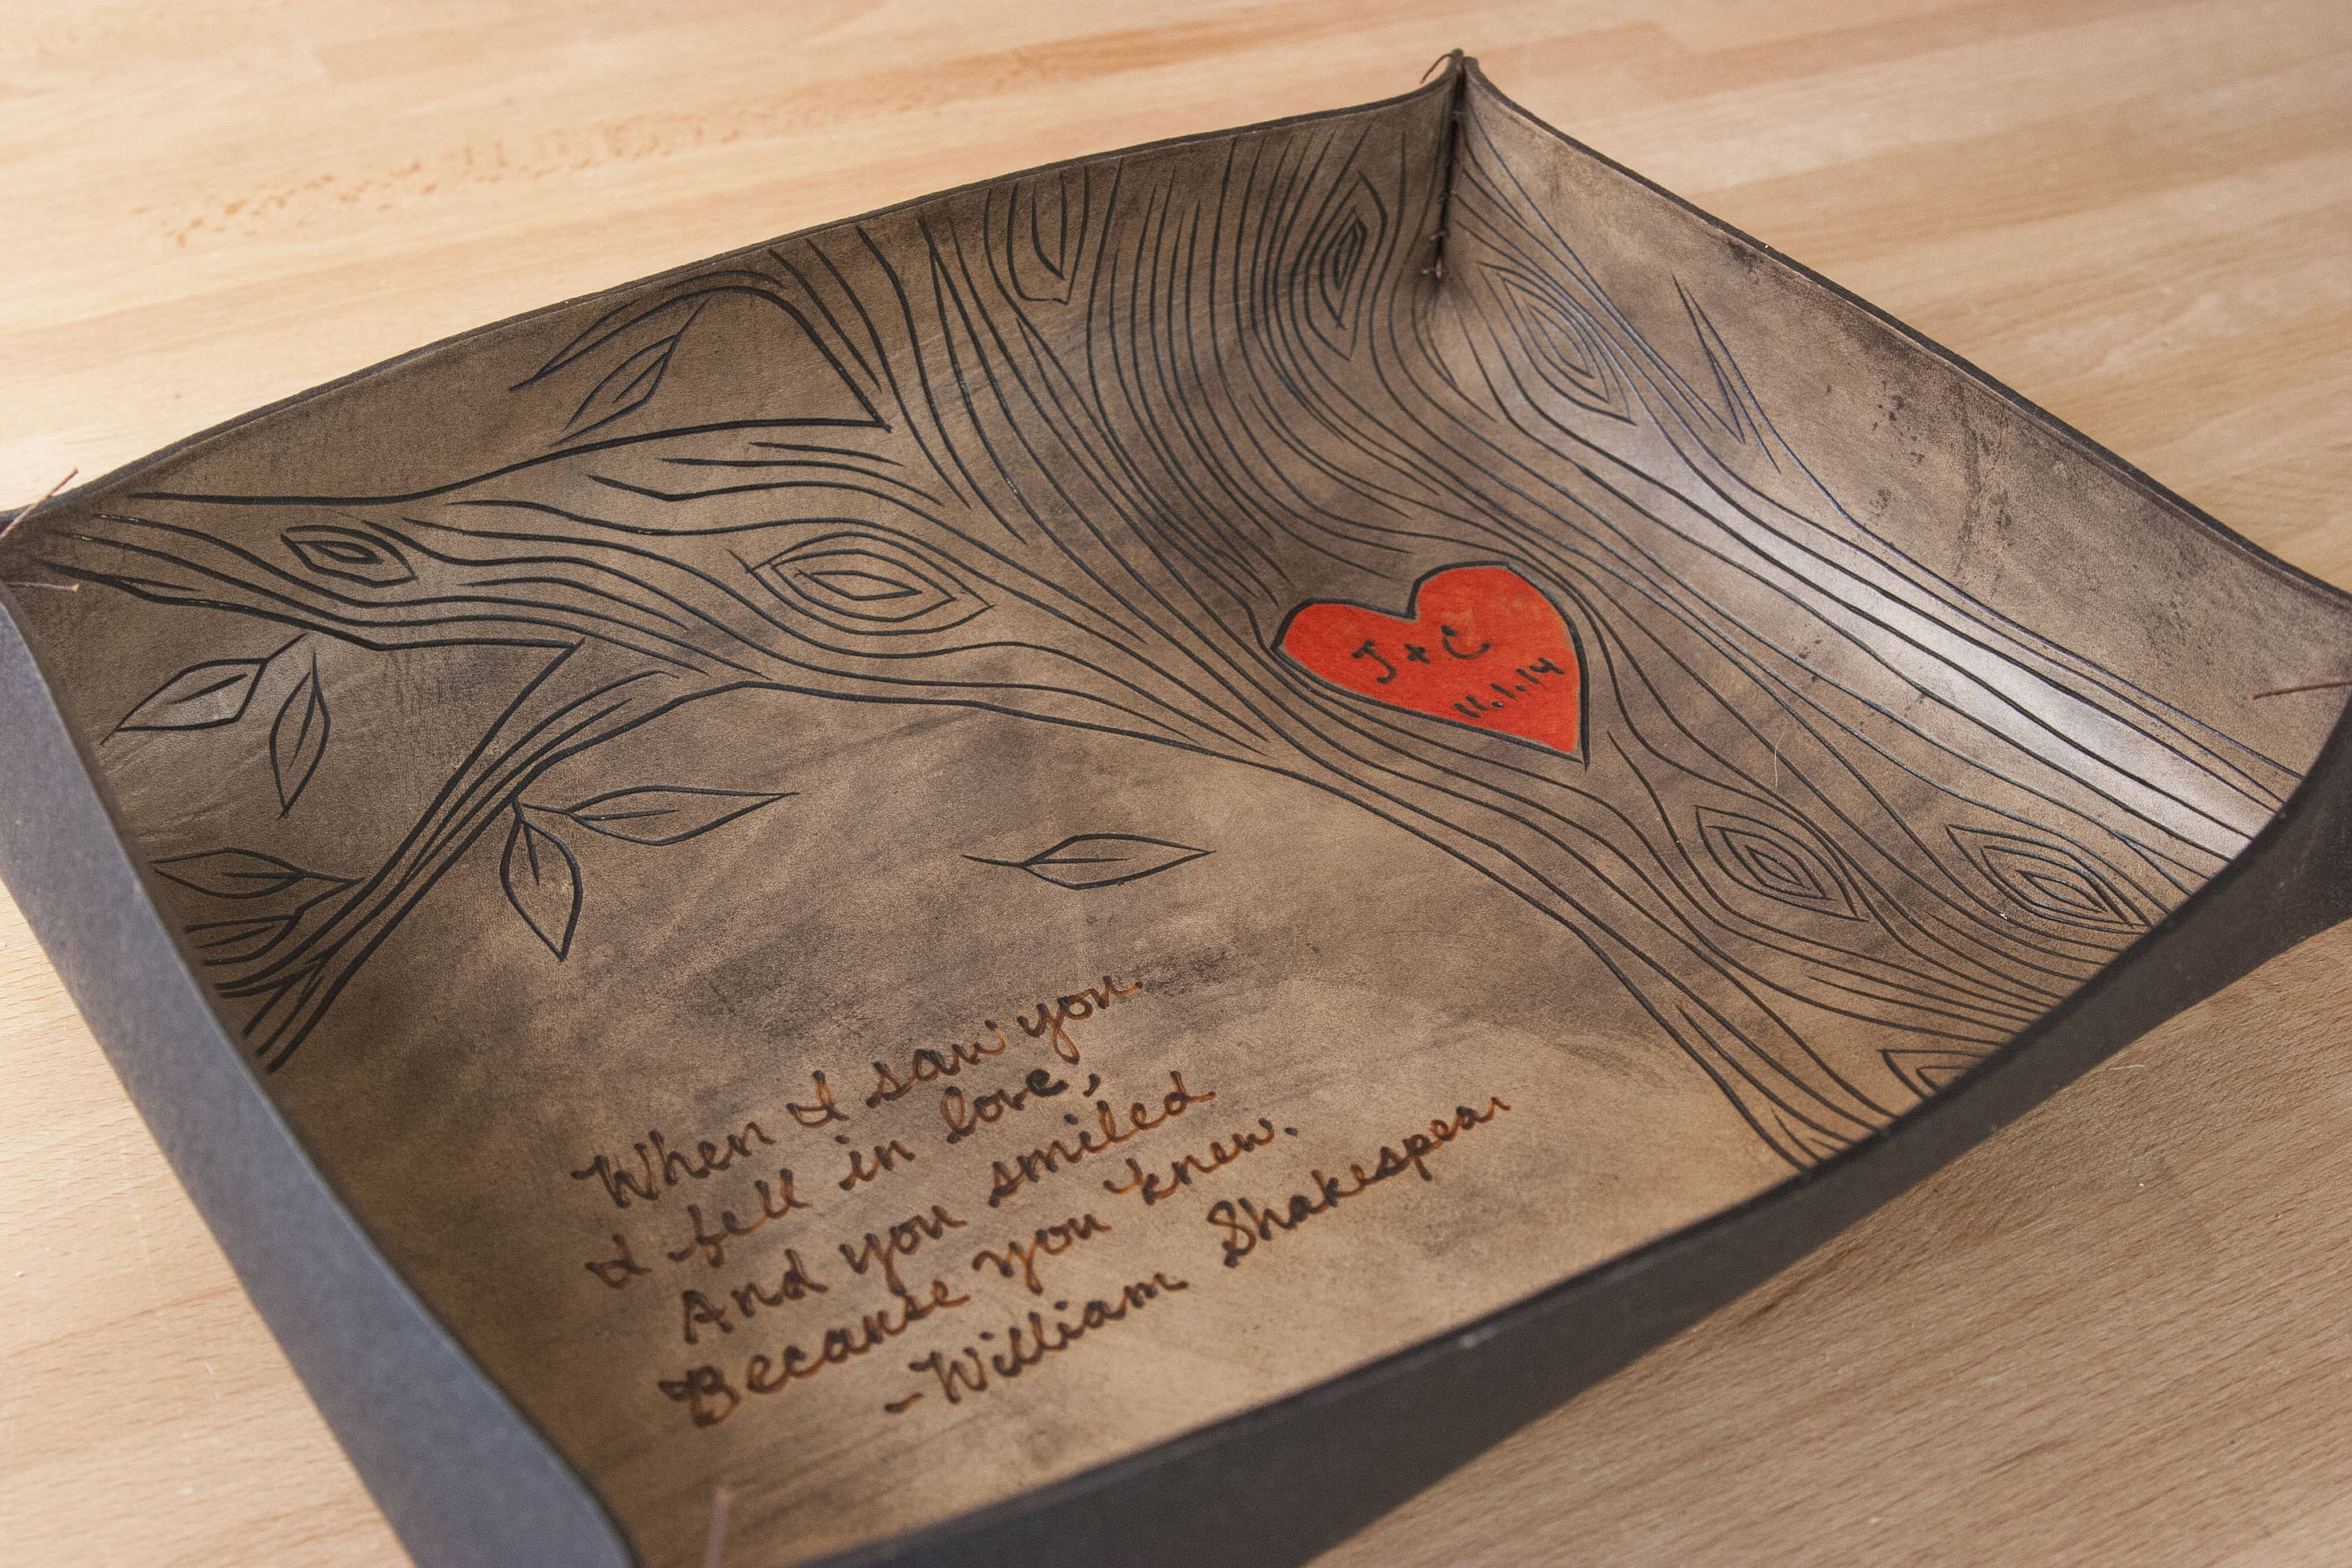 J + C
11.1.14
When I saw you.
I fell in love,
And you smiled
Because you knew.
-William Shakespear